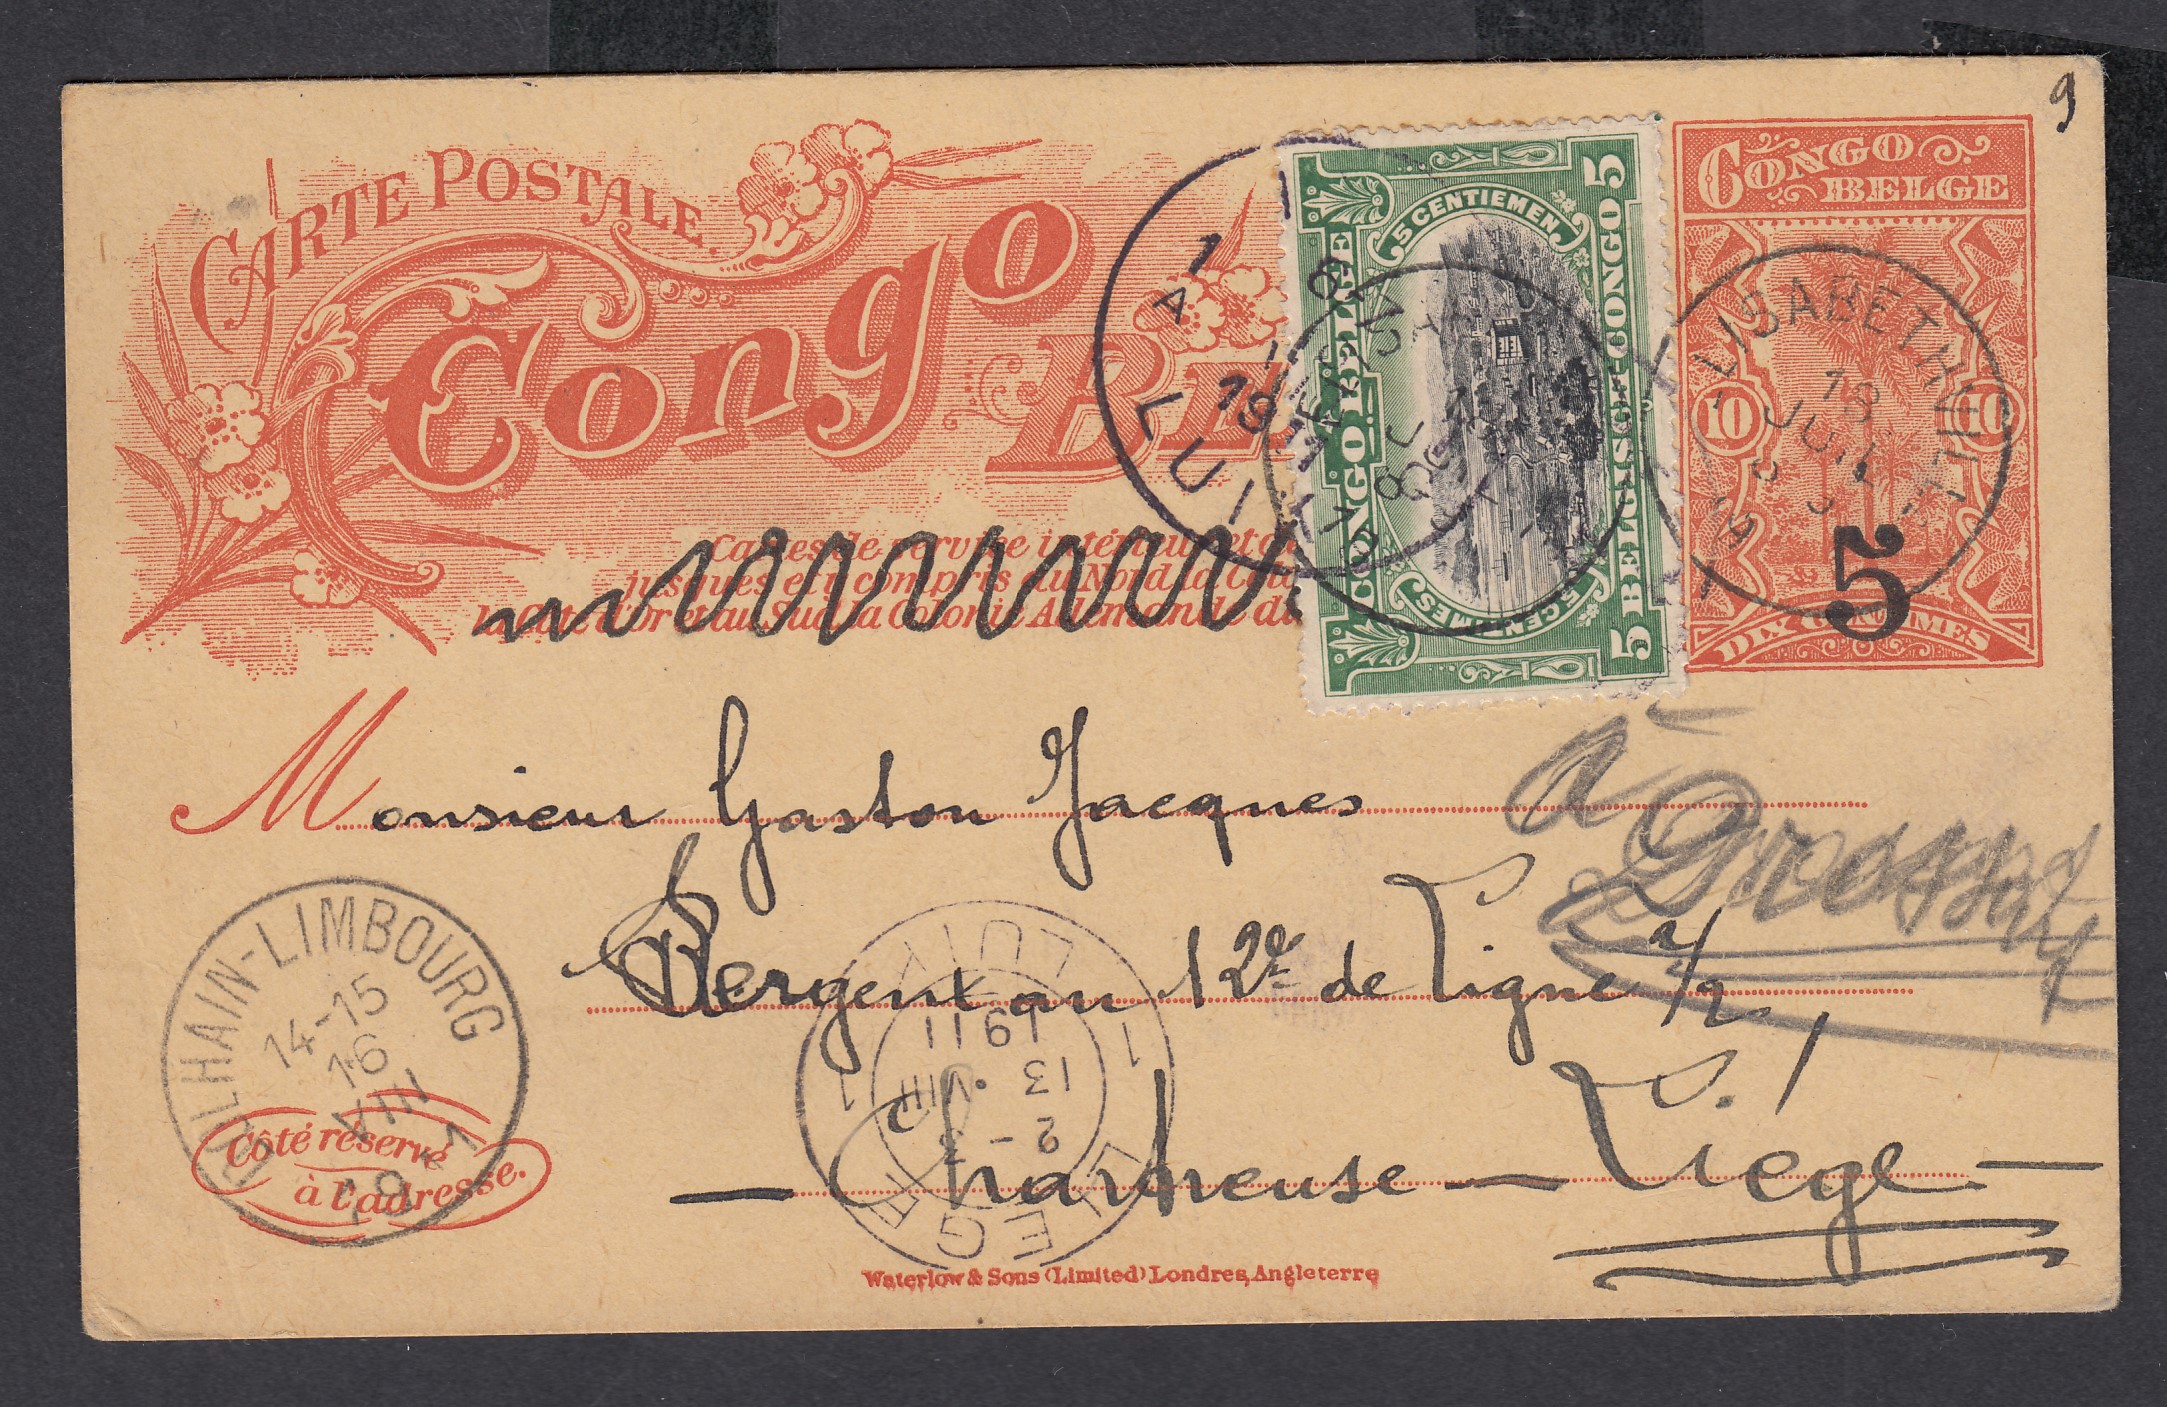 9
CARTE POSTALE.
Congo
CONGO
BELGE
10 10
5
DIX CENTIMES
5 CENTIEMEN
CONGO BELGE
BELGISCH CONGO
5 CENTIMES
5 5
ELISABETHVILLE
18
JUIL
Cartes de service intérieur et
jusques et y compris au Nord la
la Côte d'Or et au Sud la Colonie Allemande du
Monsieur Gaston Jacques
à
Sergent au 12e de Ligne 2/2,
Chartreuse - Liége -
DOLHAIN-LIMBOURG
14-15
16
VIII
LUIK
1 1
1911
13 VIII
2-3
LIEGE
Côté réservé
à l'adresse.
Waterlow & Sons (Limited) Londres, Angleterre